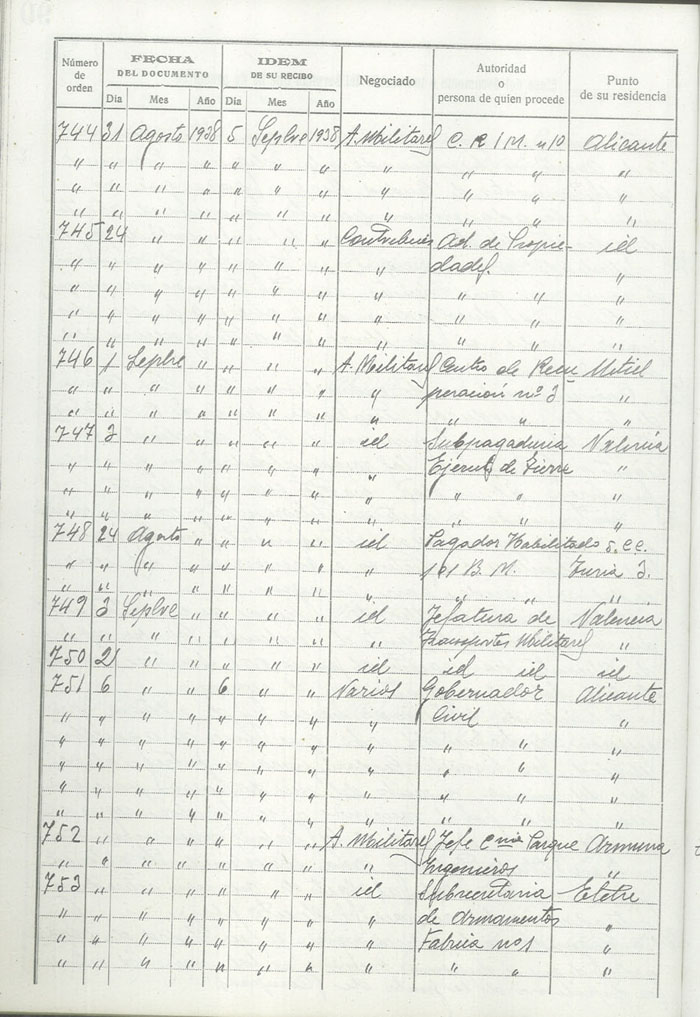 Número de orden | FECHA DEL DOCUMENTO | IDEM DE SU RECIBO | Negociado | Autoridad o persona de quien procede | Punto de su residencia
Día | Mes | Año | Día | Mes | Año
744 31 Agosto 1938 5 Sepbre 1938 A. Militares C. R. I M. nº 10 Alicante
" " " " " " " " " " "
" " " " " " " " " " "
" " " " " " " " " " "
745 24 " " " " " Ad. de Propie- id
" " " " " " " " dades. "
" " " " " " " " " " "
" " " " " " " " " " "
" " " " " " " " " " "
746 1 Sepbre " " " " A. Militares Centro de Recu Utiel
" " " " " " " " peración nº 3 "
" " " " " " " " " " "
747 3 " " " " " id Subpagaduria Valencia
" " " " " " " " Ejercito de Tierra "
" " " " " " " " " " "
" " " " " " " " " " "
748 24 Agosto " " " " id Pagador Habilitado 5. CC.
" " " " " " " " B. M. Turia 3.
" " " " " " " " " " "
749 3 Sepbre " " " " id Jefatura de Valencia
" " " " " " " " Transportes Militares "
750 21 " " " " " id id id id
751 6 " " 6 " " Varios Gobernador Alicante
" " " " " " " " Civil "
" " " " " " " " " " "
" " " " " " " " " " "
" " " " " " " " " " "
" " " " " " " " " " "
752 " " " " " " A. Militares Jefe Parque Armunia
" " " " " " " " Ingenieros "
753 " " " " " " id Subsecretaria
" " " " " " " " de Armamentos "
" " " " " " " " Fabrica nº 1 "
" " " " " " " " " " "